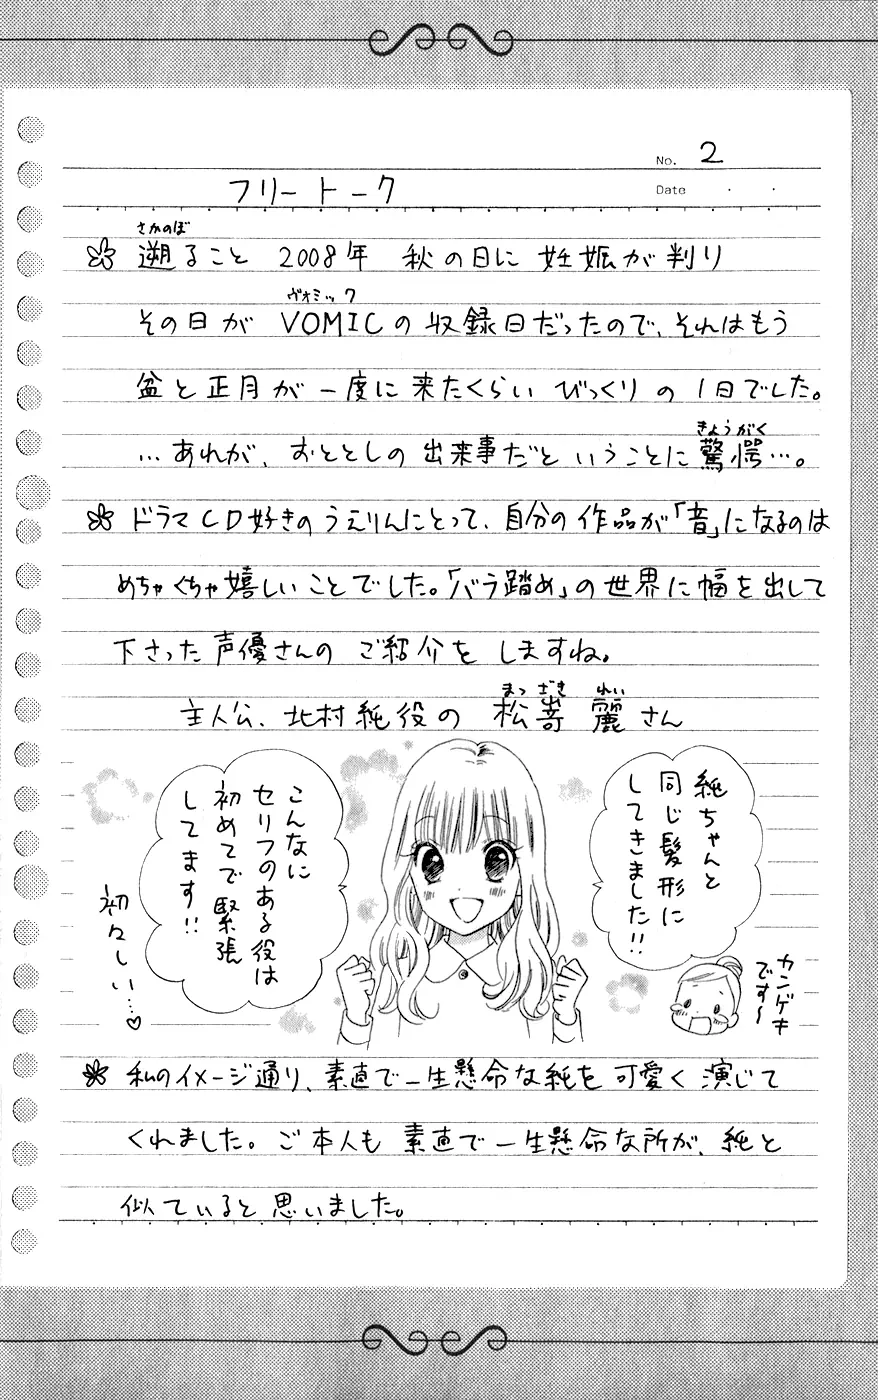 No. 2
フリートーク
Date ・ ・
さかのぼ
遡ること 2008年 秋の日に 妊娠が判り
ヴォミック
その日が VOMICの収録日だったので、それはもう
盆と正月が一度に来たくらい びっくりの1日でした。
きょうがく
…あれが、おととしの出来事だということに驚愕…。
ドラマCD好きのうえりんにとって、自分の作品が「音」になるのは
めちゃくちゃ嬉しいことでした。「バラ踏め」の世界に幅を出して
下さった声優さんの ご紹介を しますね。
まつざき れい
主人公、北村純役の 松嵜 麗さん
純ちゃんと
同じ髪形に
してきました!!
カンゲキ
です〜
こんなに
セリフのある役は
初めてで緊張
してます!!
初々しい…♡
私のイメージ通り、素直で一生懸命な純を可愛く演じて
くれました。ご本人も素直で一生懸命な所が、純と
似ていると思いました。